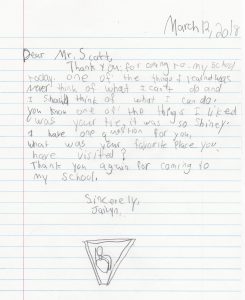 March 12, 2018
Dear Mr. Scott,
Thank you for coming to my school
today. one of the things I learned was
never think of what I can't do and
I should think of what I can do.
you know one of the things I liked
was your tie, it was so shiney.
I have one question for you,
what was your favorite place you
have visited?
Thank you again for coming to
my school.
Sincerely,
Jailyn